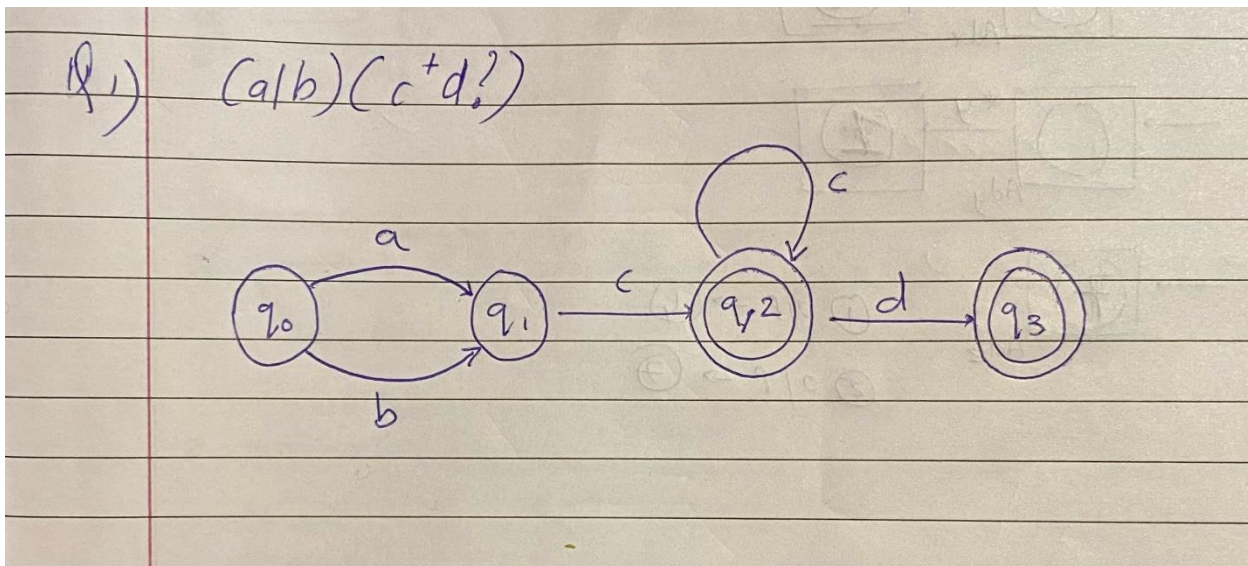 Q1) (a/b)(c⁺d?)
c
a
q₀ q₁ c q₂ d q₃
b